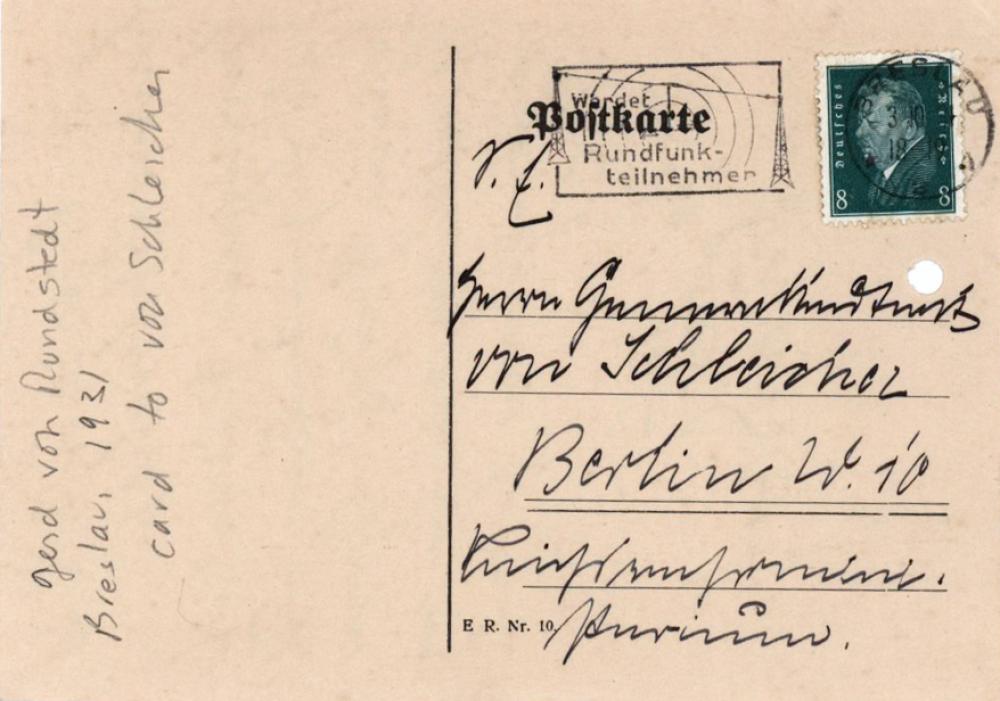 Gerd von Rundstedt
Breslau, 1931
card to von Schleicher
Postkarte
Werdet
Rundfunk-
teilnehmer
Deutsches Reich
8 8
BRESLAU
S. E.
Herrn Generalleutnant
von Schleicher
Berlin W. 10
Reichswehrmini-
sterium.
E R. Nr. 10.